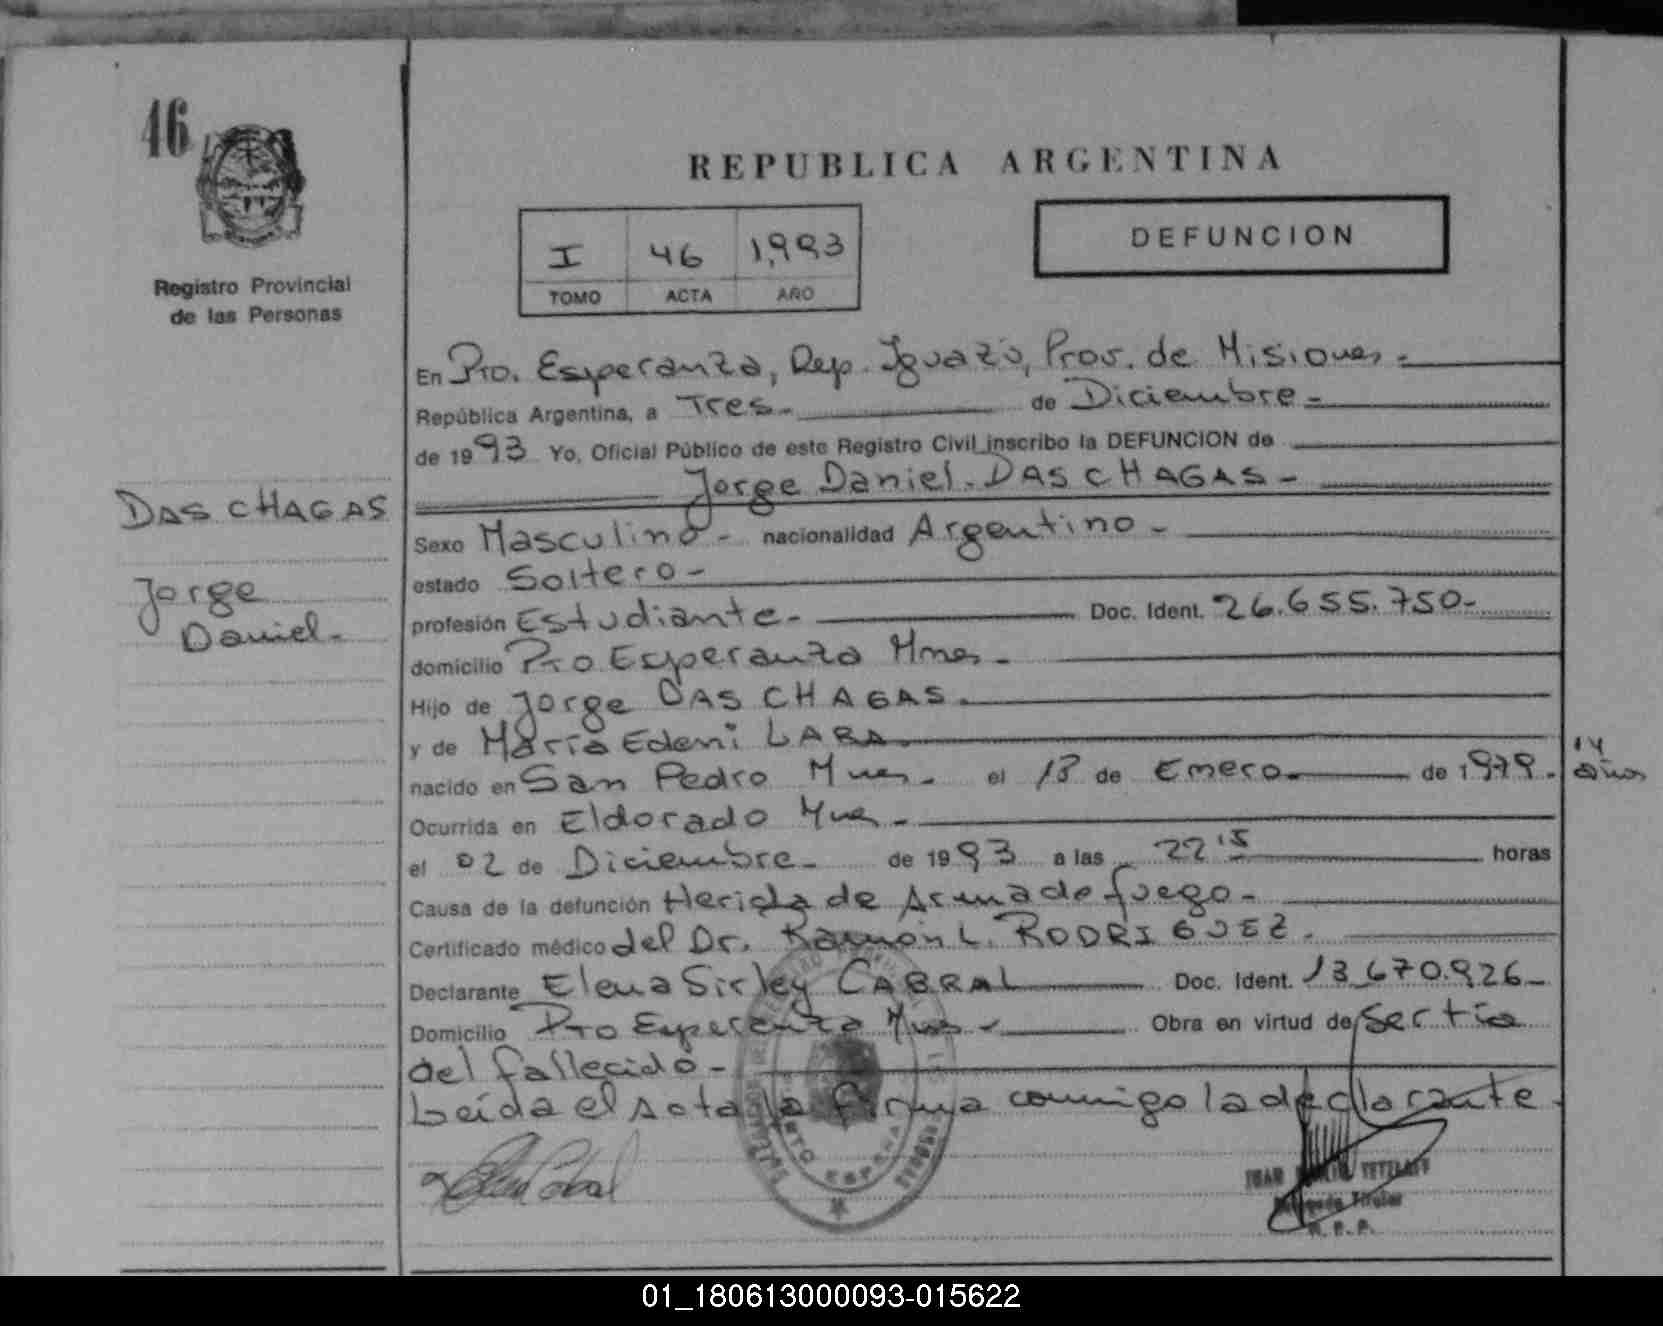 46
REPUBLICA ARGENTINA
I 46 1,993
TOMO ACTA AÑO
DEFUNCION
Registro Provincial
de las Personas
DAS CHAGAS
Jorge
Daniel.-
En Pto. Esperanza, Dep. Iguazú, Prov. de Misiones.-
República Argentina, a Tres.- de Diciembre.-
de 1993 Yo, Oficial Público de este Registro Civil inscribo la DEFUNCION de
Jorge Daniel. DAS CHAGAS.-
Sexo Masculino.- nacionalidad Argentino.-
estado Soltero.-
profesión Estudiante.- Doc. Ident. 26.655.750.-
domicilio Pto Esperanza Mnes.-
Hijo de Jorge DAS CHAGAS.
y de María Edemi LARA.
nacido en San Pedro Mnes.- el 13 de Enero.- de 1979.- 14 años
Ocurrida en Eldorado Mnes.-
el 02 de Diciembre.- de 1993 a las 22 15 horas
Causa de la defunción Herida de Arma de fuego.-
Certificado médico del Dr. Ramón L. RODRIGUEZ.
Declarante Elena Sirley CABRAL Doc. Ident. 13.670.926.-
Domicilio Pto Esperanza Mnes.- Obra en virtud de ser tía
del fallecido.-
Leída el acta la firma conmigo la declarante.
Titular
R.P.P.
01_180613000093-015622